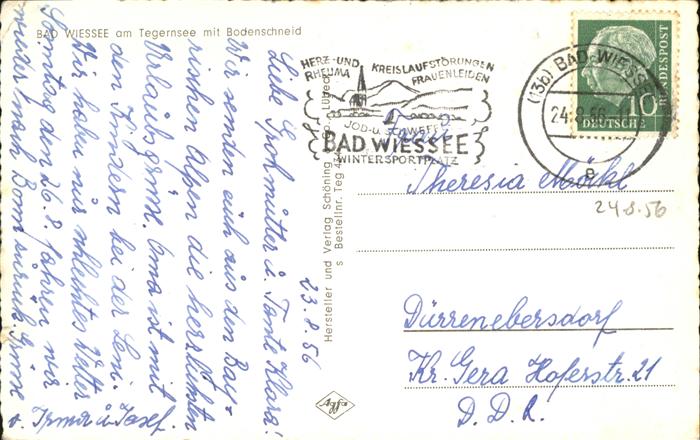 BAD WIESSEE am Tegernsee mit Bodenschneid
23.8.56
Liebe Großmutter u. Tante Klara!
Wir senden euch aus den Bay-
rischen Alpen die herzlichsten
Urlaubsgrüße. Oma ist mit
den Kindern bei der Leni.
Wir haben nur schlechtes Wetter
Sonntag den 26.8. fahren wir
wieder nach Bonn zurück. Grüße
v. Irma u. Josef.
Hersteller und Verlag Schöning & Co., Lübeck
s Bestellnr. Teg
Agfa
HERZ- UND KREISLAUFSTÖRUNGEN
RHEUMA FRAUENLEIDEN
JOD- u. SCHWEFEL
BAD WIESSEE
WINTERSPORTPLATZ
(13b) BAD WIESSEE
24.8.56
e
10
DEUTSCHE
BUNDESPOST
Theresia
24.8.56
Dürrenebersdorf
Kr. Gera Hoferstr. 21
D. D. R.